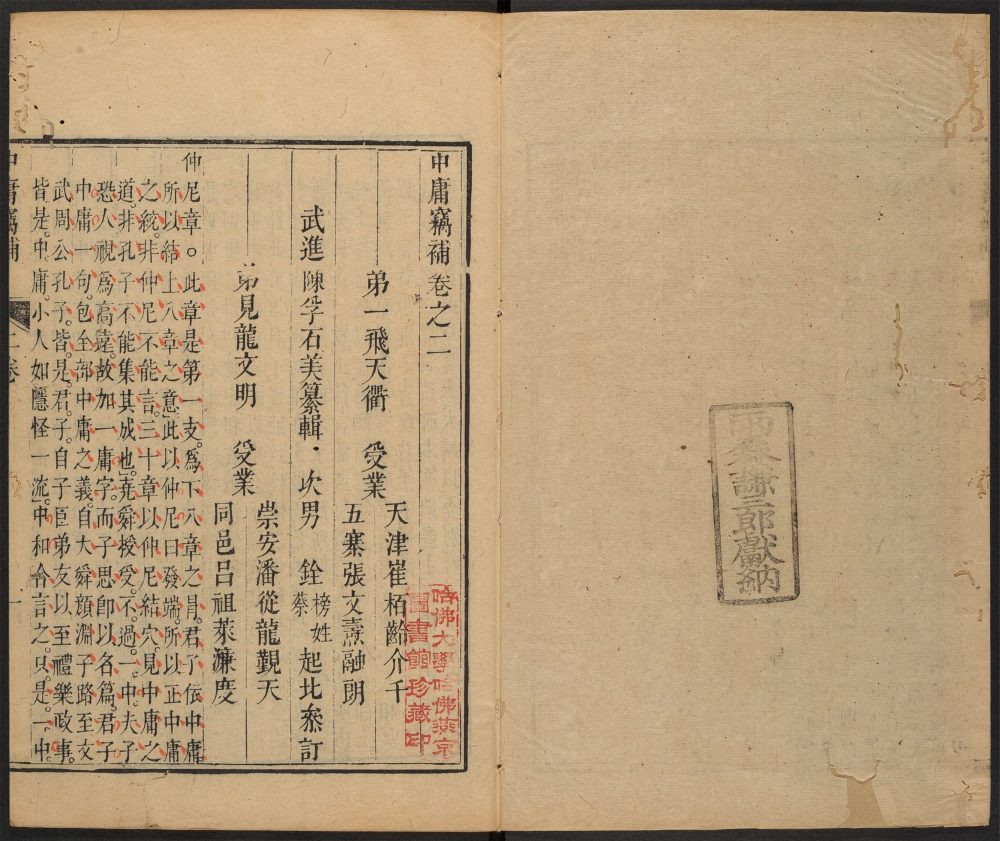 西叅謙三郎獻納
中庸竊補卷之二
哈佛大學哈佛燕京
圖書館珍藏印
弟一飛天衢 受業
天津崔栢齡介千
五寨張文燾融朗
武進陳孚石美纂輯．次男 銓 榜姓蔡 起比叅訂
弟見龍文明 受業
崇安潘從龍覲天
同邑呂祖萊濂度
仲尼章。此章是第一支。爲下八章之冐。君子依中庸。
所以結上八章之意。此以仲尼曰發端。所以正中庸
之統。非仲尼不能言。三十章以仲尼結穴。見中庸之
道。非孔子不能集其成也。堯舜授受。不過一中。夫子
恐人視爲高遠。故加一庸字。而子思卽以名篇。君子
中庸一句。包全部中庸之義。自大舜顏淵子路至文
武周公孔子。皆是君子。自子臣弟友以至禮樂政事。
皆是中庸。小人如隱怪一流。中和合言之。只是一中。
中庸竊補
二卷
一